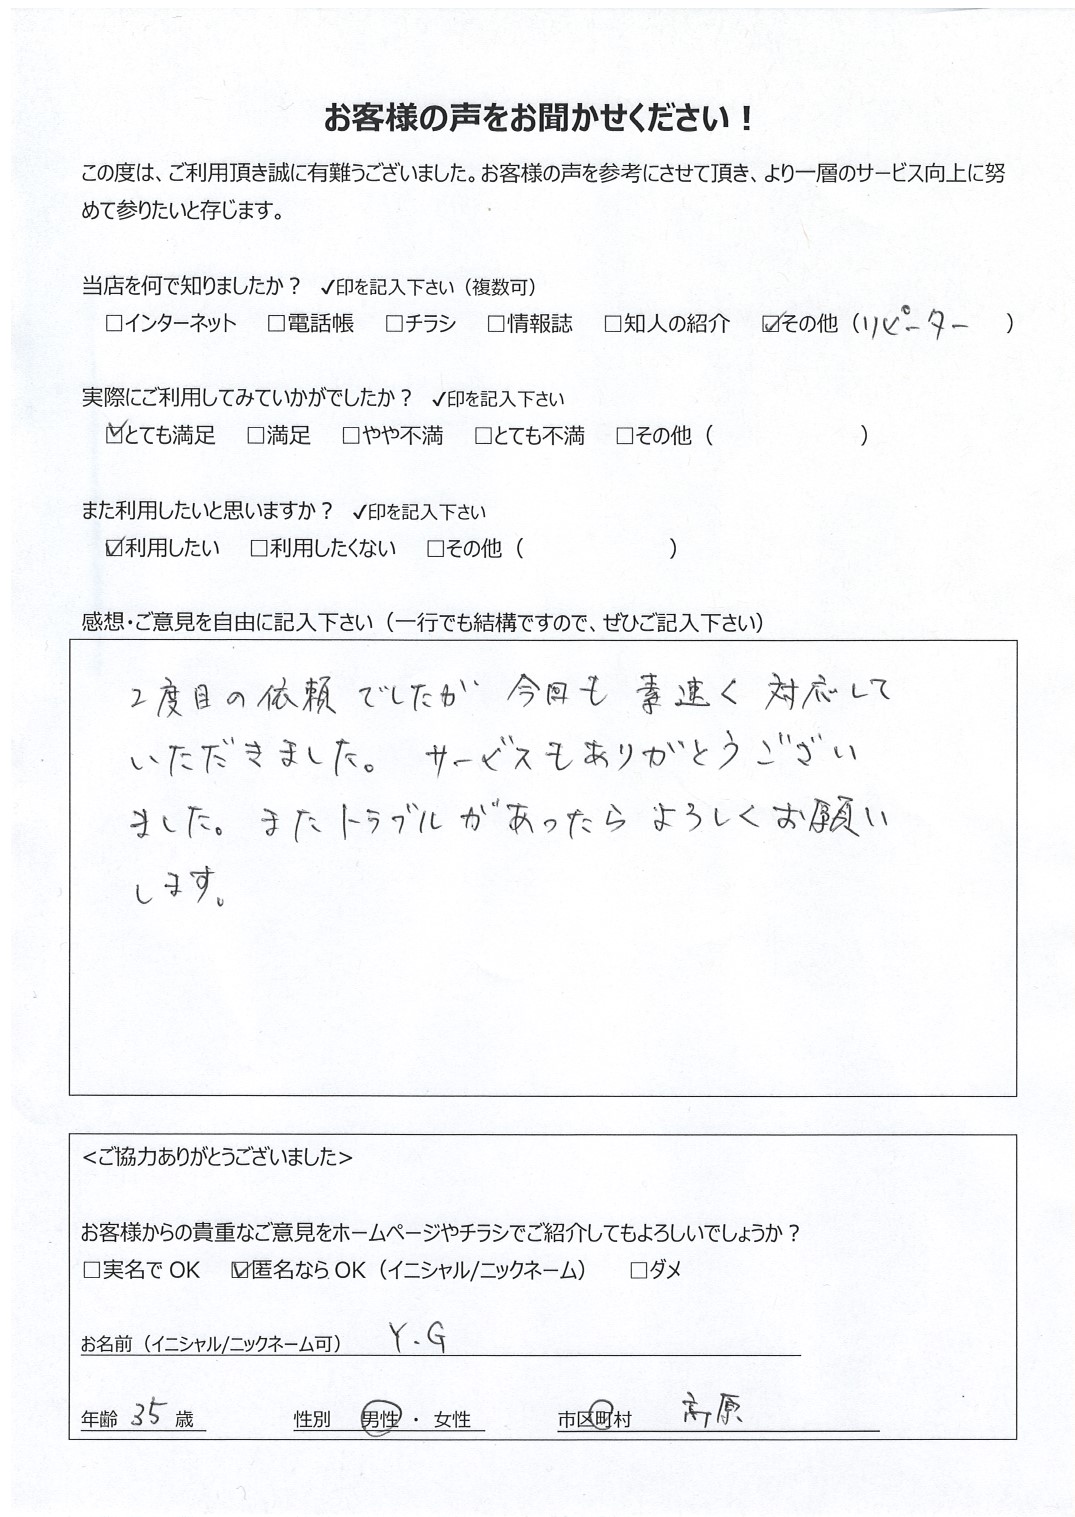 お客様の声をお聞かせください！
この度は、ご利用頂き誠に有難うございました。お客様の声を参考にさせて頂き、より一層のサービス向上に努
めて参りたいと存じます。
当店を何で知りましたか？ ✓印を記入下さい（複数可）
□インターネット □電話帳 □チラシ □情報誌 □知人の紹介 ☑その他（リピーター ）
実際にご利用してみていかがでしたか？ ✓印を記入下さい
☑とても満足 □満足 □やや不満 □とても不満 □その他（ ）
また利用したいと思いますか？ ✓印を記入下さい
☑利用したい □利用したくない □その他（ ）
感想・ご意見を自由に記入下さい（一行でも結構ですので、ぜひご記入下さい）
2度目の依頼でしたが 今回も 素速く 対応して
いただきました。 サービスもありがとうござい
ました。またトラブルがあったらよろしくお願い
します。
<ご協力ありがとうございました>
お客様からの貴重なご意見をホームページやチラシでご紹介してもよろしいでしょうか？
□実名で OK ☑匿名なら OK（イニシャル/ニックネーム） □ダメ
お名前（イニシャル/ニックネーム可） Y.G
年齢 35 歳 性別 男性 ・ 女性 市区町村 高原